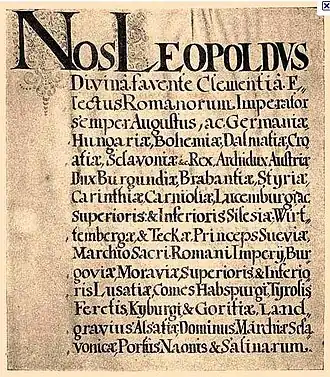 NOS LEOPOLDVS
Divina favente Clementia E-
lectus Romanorum Imperator
semper Augustus, ac Germaniæ
Hungariæ, Bohemiæ, Dalmatiæ, Cro
atiæ, Sclavoniæ &c. Rex, Archidux Austriæ
Dux Burgundiæ, Brabantiæ, Styriæ
Carinthiæ, Carnioliæ, Luxemburgi, ac
Superioris & Inferioris Silesiæ, Wirt-
tembergæ, & Teckæ, Princeps Sueviæ
Marchio Sacri Romani Imperij, Bur
goviæ, Moraviæ, Superioris & Inferio
ris Lusatiæ, Comes Habspurgi, Tyrolis
Feretis, Kyburgi, & Goritiæ, Land,
gravius Alsatiæ, Dominus Marchiæ Scla
vonicæ, Portus Naonis & Salinarum.